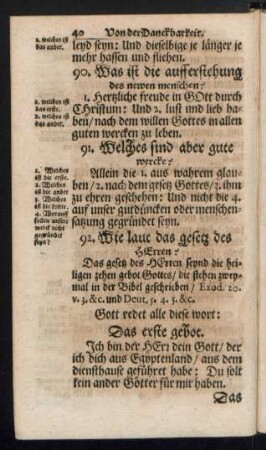 40 Von der Danckbarkeit.
1. welches ist
das ander.
leyd seyn: Und dieselbige je länger je
mehr hassen und fliehen.
90. Was ist die aufferstehung
des newen menschen?
1. welches ist
das erste.
2. welches ist
das ander.
1. Hertzliche freude in GOtt durch
CHristum: Und 2. lust und lieb ha-
ben/ nach dem willen Gottes in allen
guten wercken zu leben.
91. Welches sind aber gute
wercke?
1. Welches
ist die erste.
2. Welches
ist die ander
3. Welches
ist die dritte.
4. Worauff
sollen unsere
werck nicht
gegründet
seyn?
Allein die 1. aus wahrem glau-
ben/ 2. nach dem gesetz Gottes/ 3. ihm
zu ehren geschehen: Und nicht die 4.
auf unser gutdüncken oder menschen-
satzung gegründet seyn.
92. Wie laut das gesetz des
HErren?
Das gesetz des HErren seynd die hei-
ligen zehen gebot Gottes/ die stehen zwey-
mal in der Bibel geschrieben/ Exod. 20.
v. 3. &c. und Deut. 5. 4. 5. &c.
Gott redet alle diese wort:
Das erste gebot.
Ich bin der HErr dein Gott/ der
ich dich aus Egyptenland/ aus dem
diensthause geführet habe: Du solt
kein ander Götter für mir haben.
Das